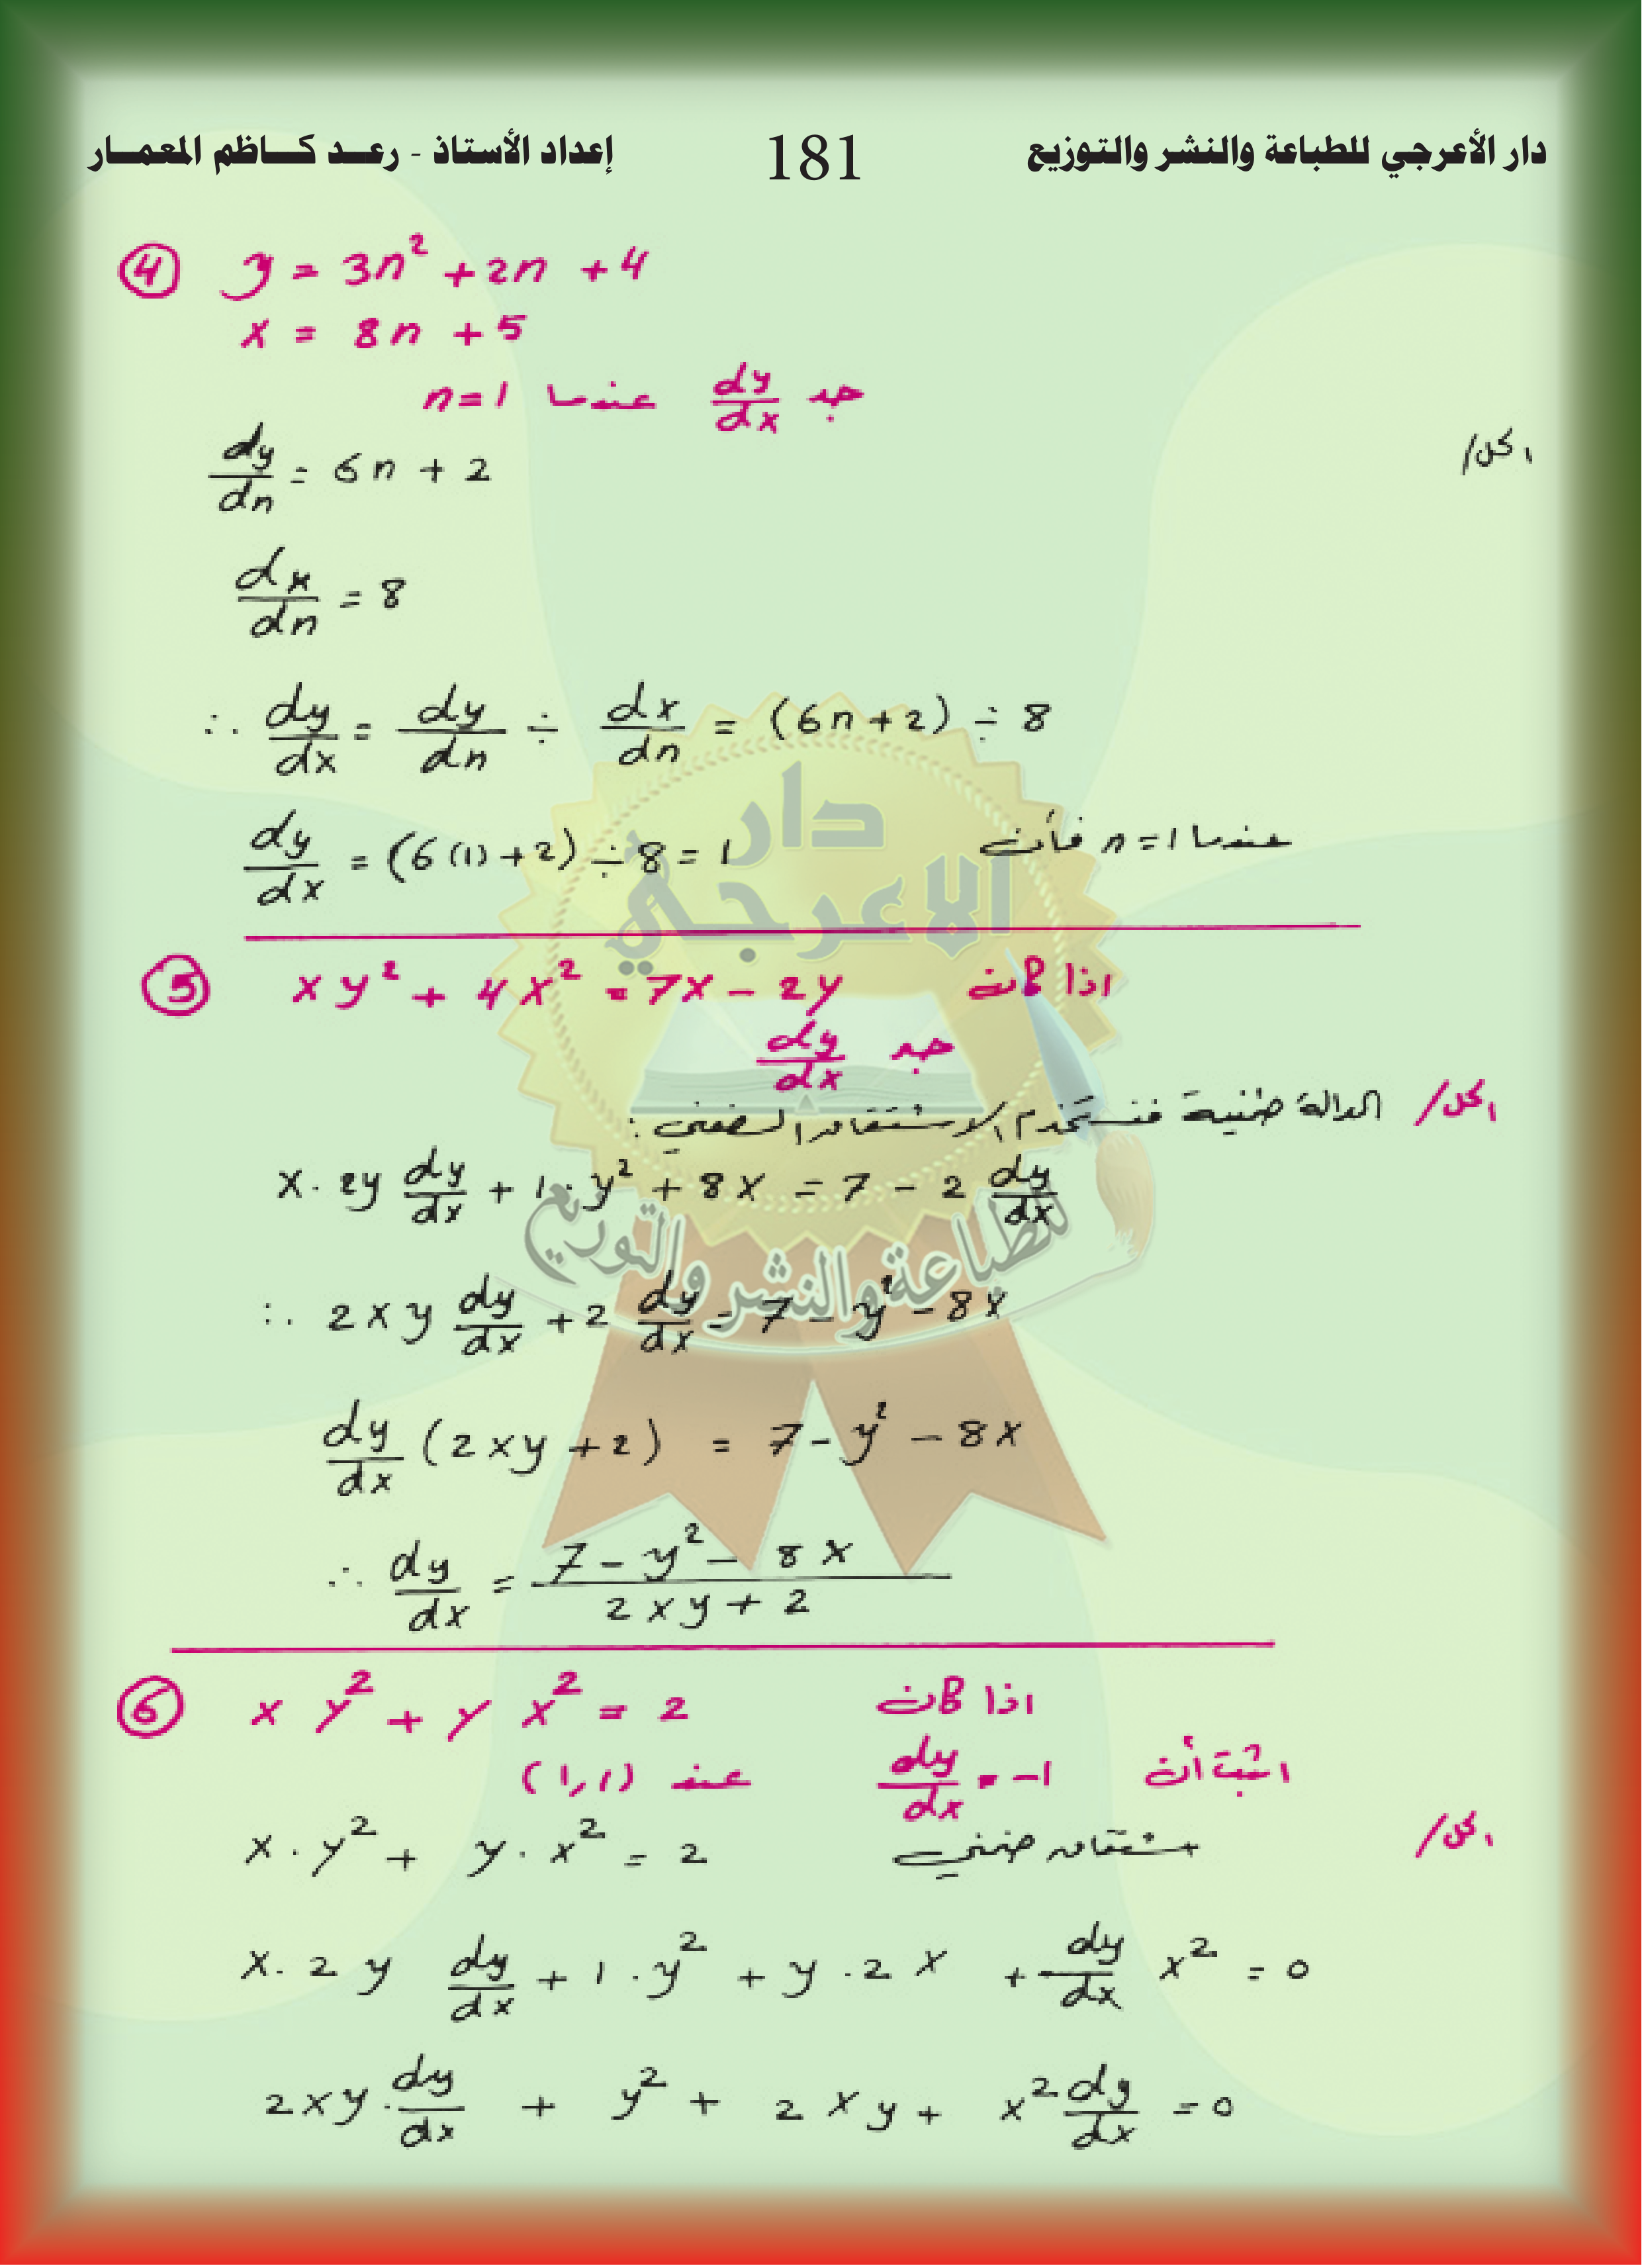 دار الأعرجي للطباعة والنشر والتوزيع 181 إعداد الأستاذ - رعد كاظم المعمار
④ y = 3n² + 2n + 4
x = 8n + 5
جد dy/dx عندما n=1
الحل/
dy/dn = 6n + 2
dx/dn = 8
∴ dy/dx = dy/dn ÷ dx/dn = (6n+2) ÷ 8
عندما n=1 فأن dy/dx = (6(1)+2) ÷ 8 = 1
⑤ اذا كان xy² + 4x² = 7x - 2y
جد dy/dx
الحل/ الدالة ضمنية فنستخدم الاشتقاق الضمني :
x. 2y dy/dx + 1. y² + 8x = 7 - 2 dy/dx
∴ 2xy dy/dx + 2 dy/dx = 7 - y² - 8x
dy/dx (2xy + 2) = 7 - y² - 8x
∴ dy/dx = (7 - y² - 8x) / (2xy + 2)
⑥ اذا كان x y² + y x² = 2
اثبت أن dy/dx = -1 عند (1,1)
الحل/
x. y² + y. x² = 2 اشتقاق ضمني
x. 2y dy/dx + 1. y² + y. 2x + dy/dx x² = 0
2xy. dy/dx + y² + 2xy + x² dy/dx = 0
دار
الاعرجي
للطباعة والنشر والتوزيع